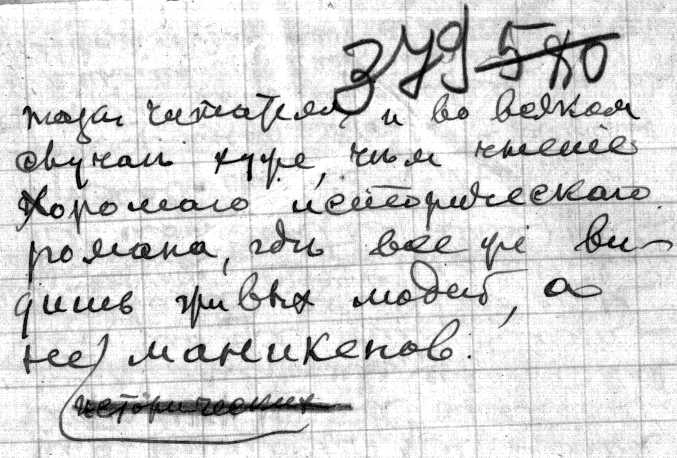 379 580
читателя, и во всяком
случаѣ хуже, чѣм чтеніе
хорошаго историческаго
романа, гдѣ все же ви-
дишь живых людей, а
не манекенов.
исторических